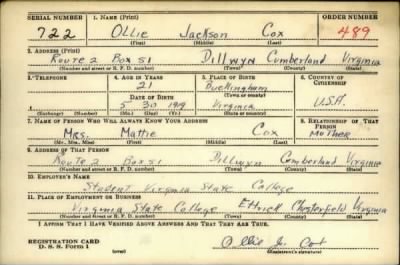 SERIAL NUMBER 1. NAME (Print) ORDER NUMBER
722 Ollie Jackson Cox 489
(First) (Middle) (Last)
2. ADDRESS (Print)
Route 2 Box 51 Dillwyn Cumberland Virginia
(Number and street or R. F. D. number) (Town) (County) (State)
3. TELEPHONE 4. AGE IN YEARS 5. PLACE OF BIRTH 6. COUNTRY OF CITIZENSHIP
21 Buckingham
DATE OF BIRTH (Town or county)
5 30 1919 Virginia U.S.A.
(Exchange) (Number) (Mo.) (Day) (Yr.) (State or country)
7. NAME OF PERSON WHO WILL ALWAYS KNOW YOUR ADDRESS 8. RELATIONSHIP OF THAT PERSON
Mrs. Mattie Cox Mother
(Mr., Mrs., Miss) (First) (Middle) (Last)
9. ADDRESS OF THAT PERSON
Route 2 Box 51 Dillwyn Cumberland Virginia
(Number and street or R. F. D. number) (Town) (County) (State)
10. EMPLOYER'S NAME
Student Virginia State College
11. PLACE OF EMPLOYMENT OR BUSINESS
Virginia State College Ettrick Chesterfield Virginia
(Number and street or R. F. D. number) (Town) (County) (State)
I AFFIRM THAT I HAVE VERIFIED ABOVE ANSWERS AND THAT THEY ARE TRUE.
REGISTRATION CARD
D. S. S. Form 1 (over) Ollie J. Cox
(Registrant's signature)